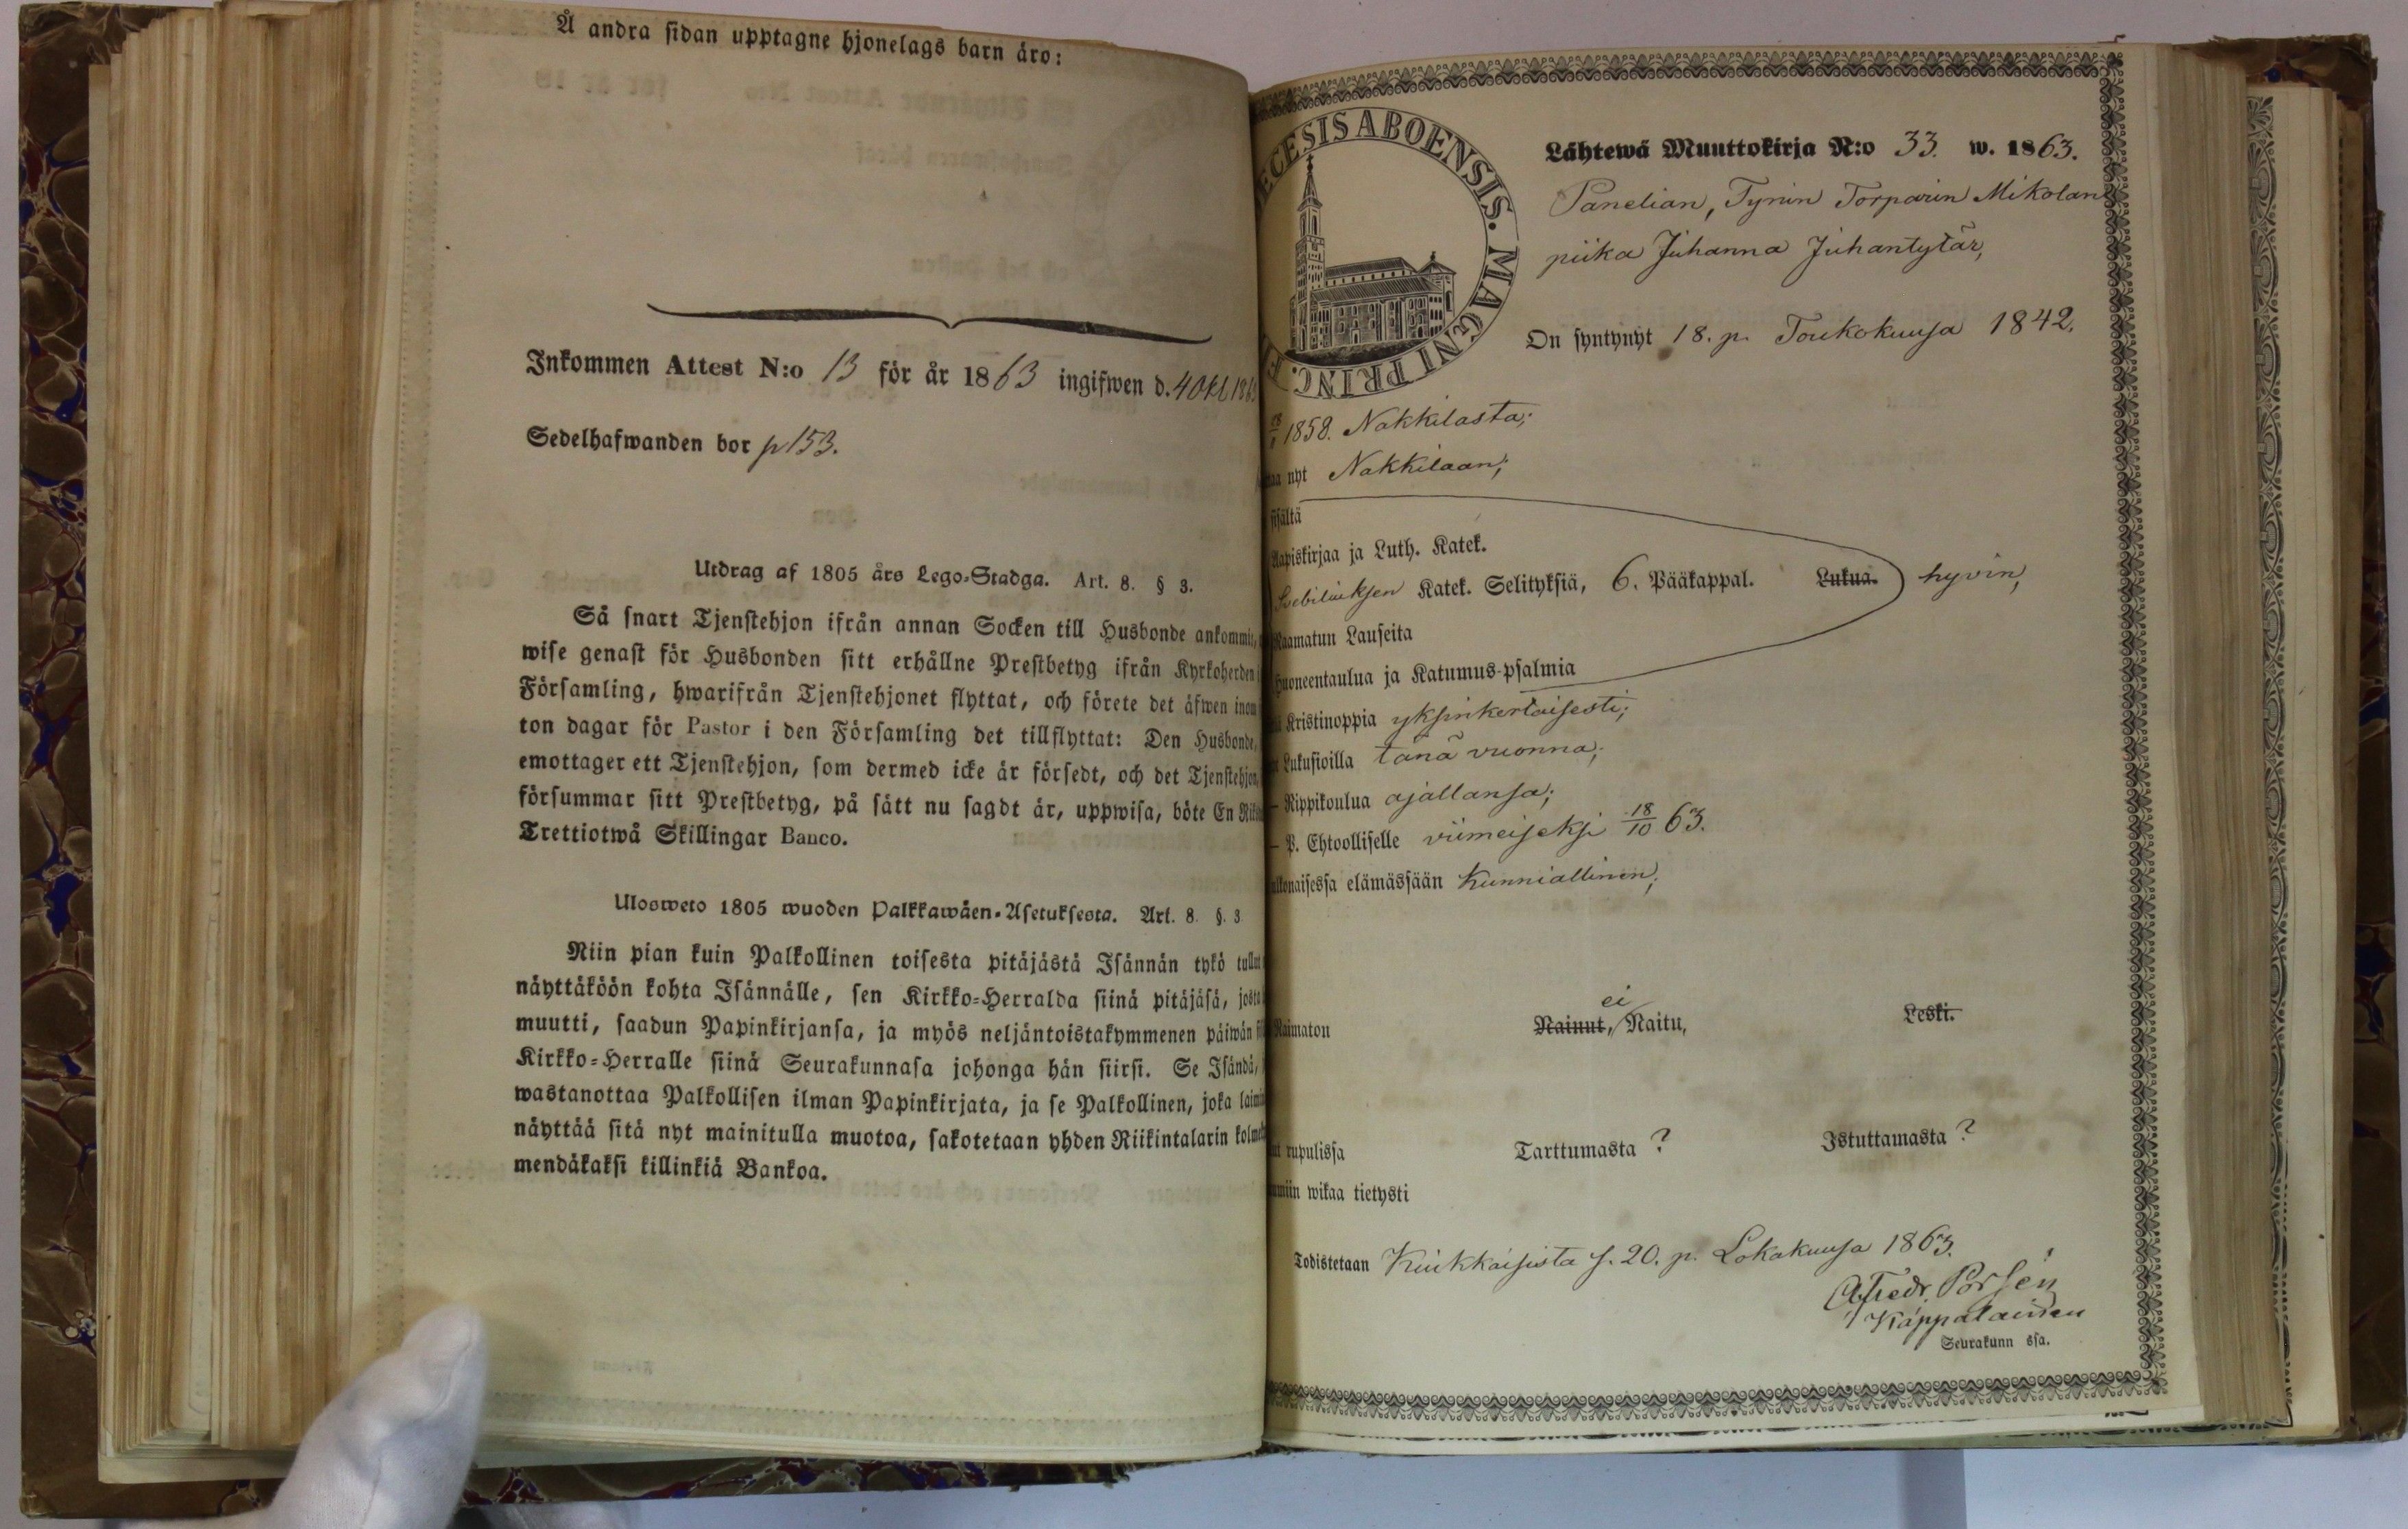 Å andra sidan upptagne hjonelags barn äro:
Inkommen Attest N:o 13 för år 1863 ingifwen d. 4 Okt 186
Sedelhafwanden bor p 153.
Utdrag af 1805 års Lego-Stadga. Art. 8. § 3.
Så snart Tjenstehjon ifrån annan Socken till Husbonde ankommit,
wise genast för Husbonden sitt erhållne Prestbetyg ifrån Kyrkoherden
Församling, hwarifrån Tjenstehjonet flyttat, och förete det äfwen inom
ton dagar för Pastor i den Församling det tillflyttat: Den Husbonde,
emottager ett Tjenstehjon, som dermed icke är försedt, och det Tjenstehjon,
försummar sitt Prestbetyg, på sätt nu sagdt är, uppwisa, böte En
Trettiotwå Skillingar Banco.
Ulosweto 1805 wuoden Palkkawäen-Asetuksesta. Art. 8. §. 3
Niin pian kuin Palkollinen toisesta pitäjästä Isännän tykö tullut
näyttäköön kohta Isännälle, sen Kirkko-Herralda siinä pitäjäsä, josta
muutti, saadun Papinkirjansa, ja myös neljäntoistakymmenen päiwän
Kirkko-Herralle siinä Seurakunnasa johonga hän siirsi. Se Isändä,
wastanottaa Palkollisen ilman Papinkirjata, ja se Palkollinen, joka
näyttää sitä nyt mainitulla muotoa, sakotetaan yhden Riikintalarin
mendäkaksi killinkiä Bankoa.
ECESIS ABOENSIS. MAGNI PRINC. F
Lähtewä Muuttokirja N:o 33. w. 1863.
Panelian, Tynin Torparin Mikolan
piika Juhanna Juhantytär,
On syntynyt 18. p. Toukokuusa 1842.
1858. Nakkilasta;
nyt Nakkilaan;
sisältä
Aapiskirjaa ja Luth. Katek.
Svebiliuksen Katek. Selityksiä, 6. Pääkappal. Lukua. hyvin,
Raamatun Lauseita
Huoneentaulua ja Katumus-psalmia
Kristinoppia yksinkertaisesti;
Lukusioilla tänä vuonna;
— Rippikoulua ajallansa;
— P. Ehtoolliselle viimeiseksi 18/10 63.
elämässään kunniallinen;
Naimaton Nainut, ei Naitu, Leski.
rupulissa Tarttumasta ? Istuttamasta ?
wikaa tietysti
Todistetaan Kiukkaisista s. 20. p. Lokakuusa 1863.
Kappalainen
Seurakunn ssa.